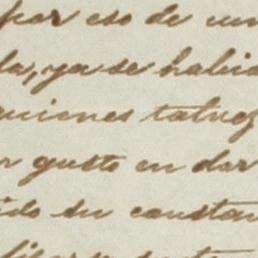 por eso de un
la, ya se habia
quienes talvez
r gusto en dar
ido su constan